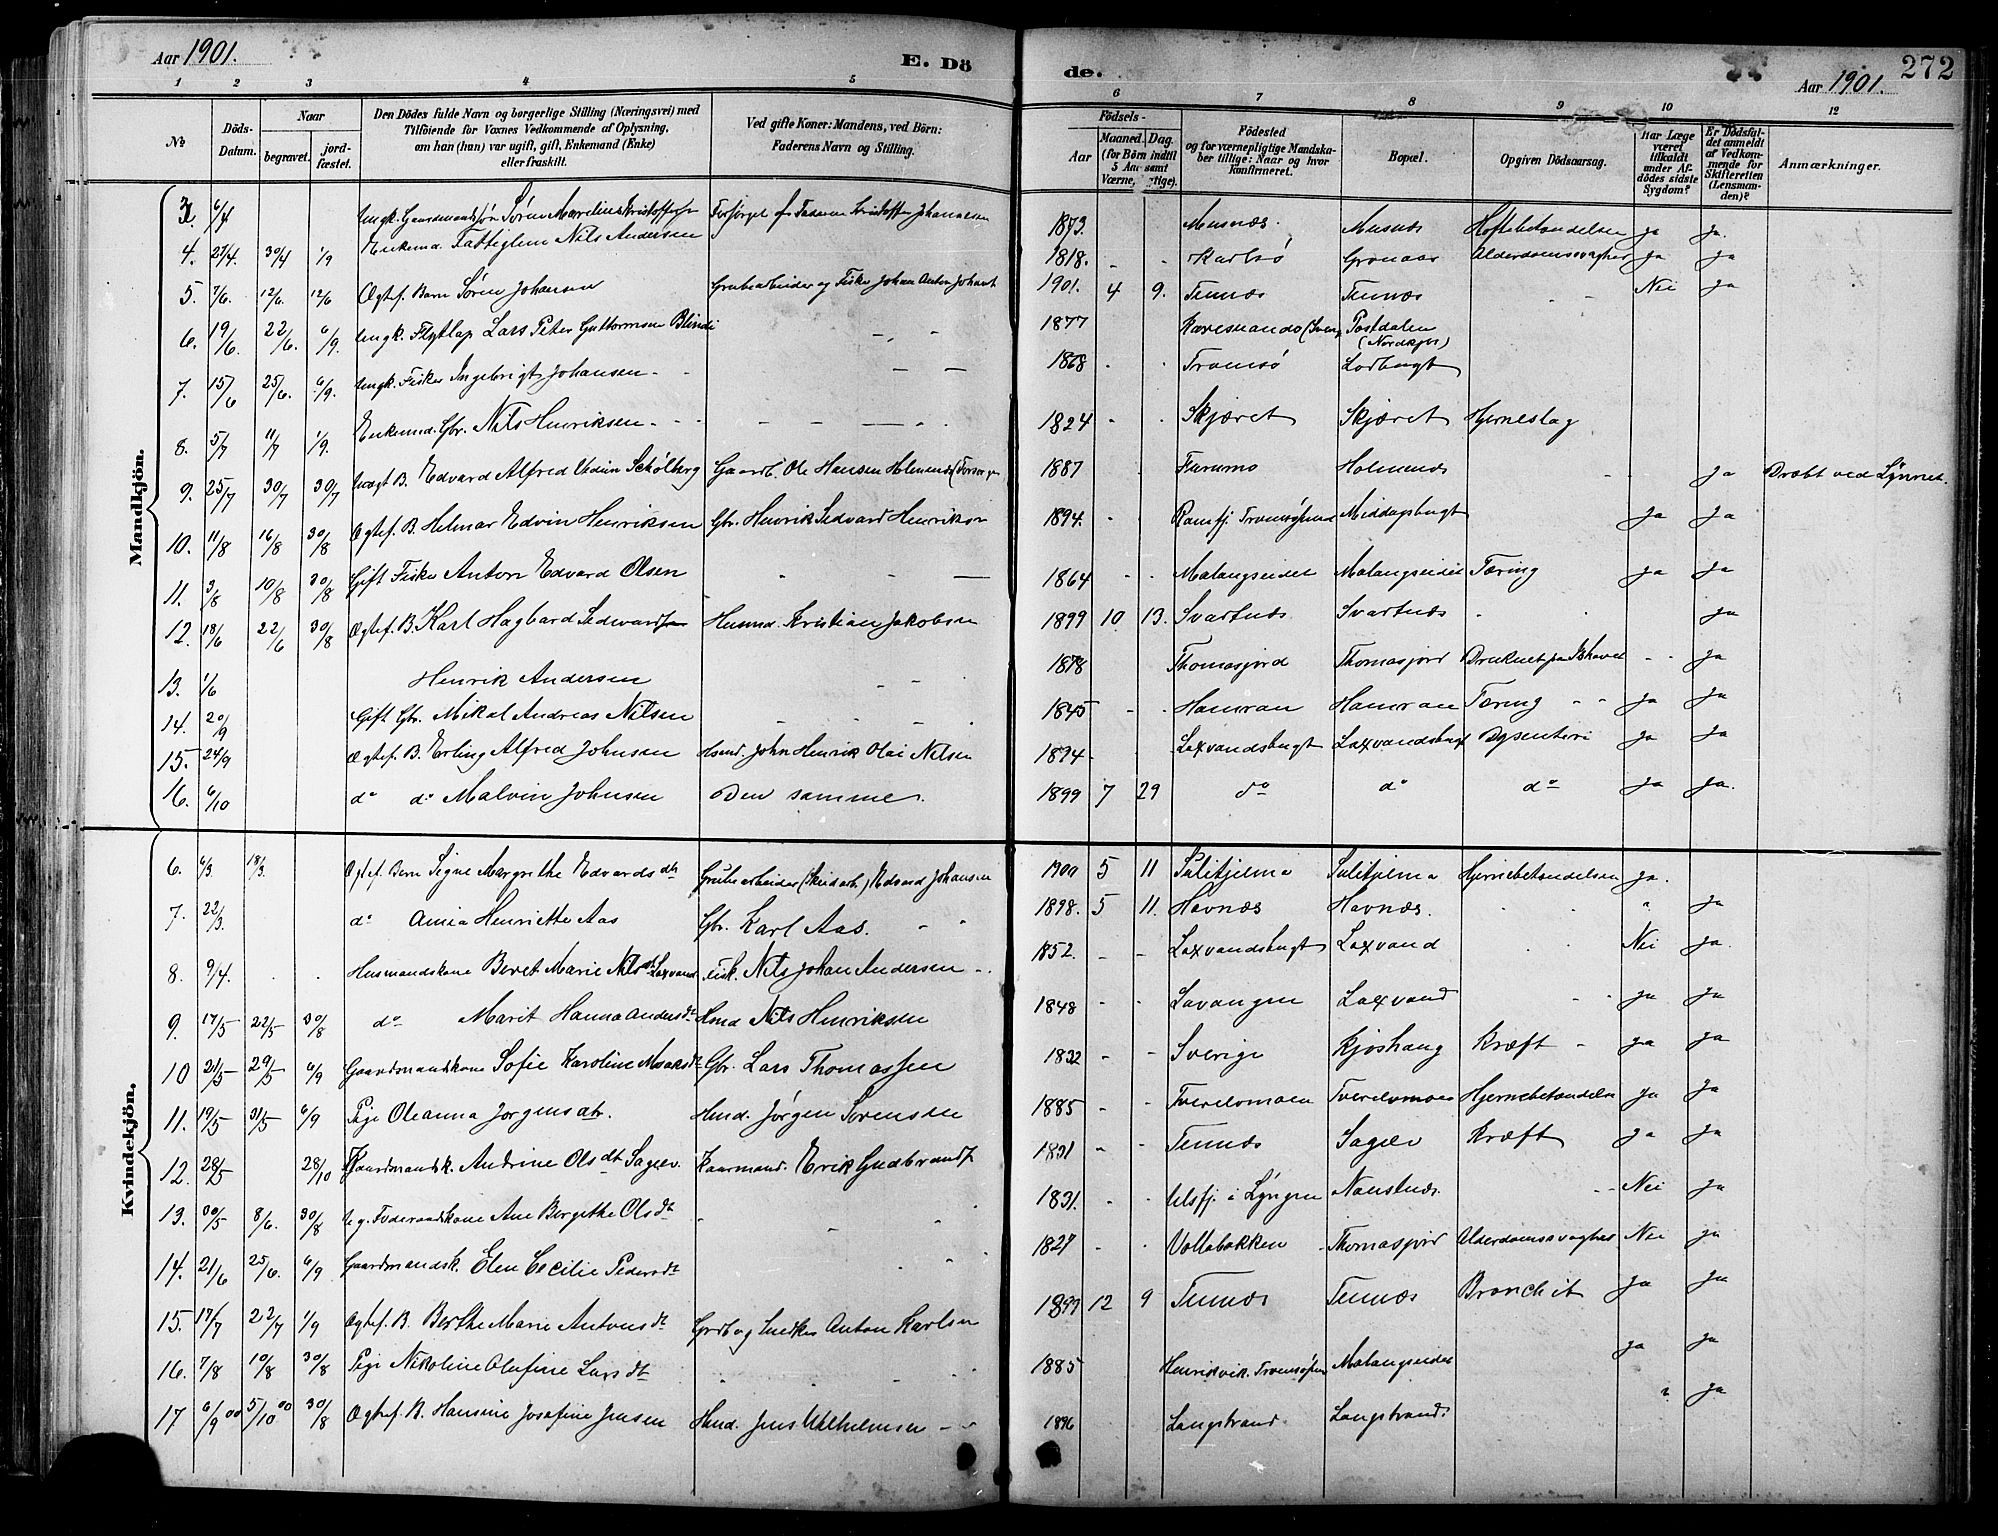 Aar 1901.
E. Dö
de.
Aar 1901.
272
1 2 3 4 5 6 7 8 9 10 11 12
№
Döds-Datum.
Naar
begravet.
jord-fæstet.
Den Dödes fulde Navn og borgerlige Stilling (Næringsvei) med
Tilföiende for Voxnes Vedkommende af Oplysning,
om han (hun) var ugift, gift, Enkemand (Enke)
eller fraskilt.
Ved gifte Koner: Mandens, ved Börn:
Faderens Navn og Stilling.
Födsels-
Aar
Maaned. Dag.
(for Börn indtil
5 Aar samt
Værnepligtige).
Födested
og for værnepligtige Mandskaber tillige: Naar og hvor
Konfirmeret.
Bopæl.
Opgiven Dödsaarsag.
Har Læge været tilkaldt under Afdödes sidste Sygdom?
Er Dödsfaldet anmeldt af Vedkommende for Skifteretten (Lensmanden)?
Anmærkninger.
Mandkjön.
3. 6/4 Ungk. Gaardmandssön Sören Marelius Kristoffersen Forsörget af Faderen Kristoffer Johannesen 1873. Musnæs. Musnæs Hoftebetændelsen ja ja.
4. 27/4. 30/4 1/9 Enkemd. Fattiglem Nils Andersen 1818. - - Karlsö Grønaas Alderdomssvaghed ja ja
5. 7/6. 12/6. 12/6 Ægtef. Barn Sören Johansen Grubearbeider og Fisker Johan Anton Johans. 1901. 4 9. Tennæs Tennæs Nei ja
6. 19/6 22/6. 6/9. Ungk. Flytlap Lars Peter Guttormsen Blindi 1877 Karesuando (Sverig) Postdalen (Nordkjos)
7. 15/6 25/6. 6/9. Ungk. Fisker Ingebrigt Johansen 1868 Tromsö Lodbugt
8. 5/7 11/7 1/9. Enkemd. Gbr. Nils Henriksen 1824 Skjæret Skjæret Hjerneslag
9. 25/7 30/7 30/7 Uægt B. Edvard Alfred Vedin Schølberg Gaardb. Ole Hansen Holmenes (Forsørger) 1887 Furumo Holmenes ja Dræbt ved Lynnet.
10. 11/8 16/8 30/8 Ægtef. B. Helmer Edvin Henriksen Gbr. Henrik Sedvard Henriksen 1894. Ramfj. Tromsösund Middagsbugt ja ja
11. 3/8 10/8 30/8 Gift Fisker Anton Edvard Olsen 1864 Malangseidet Malangseidet Tæring ja ja
12. 18/6 22/6 30/8 Ægtef. B. Karl Hagbard Sedvardsen Husmd. Kristian Jakobsen 1899 10 13. Svartnæs Svartnæs ja
13. 1/6 Henrik Andersen 1878 Thomasjord Thomasjord Druknet paa Ishavet ja
14. 20/9 Gift Gbr. Mikal Andreas Nilsen 1845 Hamran Hamran Tæring ja ja
15. 24/9 Ægtef. B. Erling Alfred Johnsen Hsmd. John Henrik Olai Nilsen 1894. Laxvandsbugt Laxvandsbugt Dysenteri ja ja
16. 6/10 do do Malvin Johnsen Den samme. 1899 7 29 do do do ja ja.
Kvindekjön.
6. 6/3 18/3. Ægtef. Barn Signe Margrethe Edvardsdtr Grubearbeider (Skeidarb.) Edvard Johansen 1900 5 11 Sulitjelma Sulitjelma Hjernebetændelsen ja.
7. 22/3. do Amia Henriette Aas Gbr. Karl Aas. 1898. 5 11. Havnæs Havnæs. ja
8. 9/4. Husmandskone Beret Marie Nilsdtr Laxvand Fisk. Nils Johan Andersen 1852. Laxvandsbugt Laxvand Nei ja.
9. 17/5 22/5 30/8 do Marit Hanna Andersdtr Hsmd Nils Henriksen 1848 Lavangen Laxvand ja ja
10 21/5 29/5 6/9 Gaardmandskone Sofie Karoline Moaksdtr Gbr. Lars Thomassen 1832 Sverige Kjoshaug Kræft ja ja
11. 19/5 31/5 6/9 Pige Oleanna Jorgensdtr. Hmd. Jørgen Sörensen 1885 Tverelvmoen Tverelvmoen Hjernebetændelse ja ja
12. 28/5 28/10 Gaardmandsk. Andrine Olsdtr Sagelv. Kaarmand. Erik Gudbrands. 1831 Tennæs Sagelv Kræft ja ja
13. 30/5 8/6. 30/8 Ug. Föderaadskone Ane Bergithe Olsdtr 1831. Ulsfj. i Lyngen Navstnæs. Nei ja
14. 21/6 25/6. 6/9 Gaardmandsk. Elen Cecilie Pedersdtr 1827 Vollabakken Thomasjord Alderdomssvaghed Nei ja
15. 17/7 22/7 1/9 Ægtef. B. Berthe Marie Antonsdtr Grdb og Snedker Anton Karlsen 1899 12 9 Tennæs Tennæs Bronchit ja ja
16. 7/8 10/8 30/8 Pige Nikoline Olufine Larsdtr 1885 Henrikvik. Tromsösun Malangseidet ja ja
17 6/9 00 5/10 00 30/8 Ægtef. B. Hansine Josefine Jensen Hmd. Jens Wilhelmsen 1896 Langstrand Langstrand ? ja